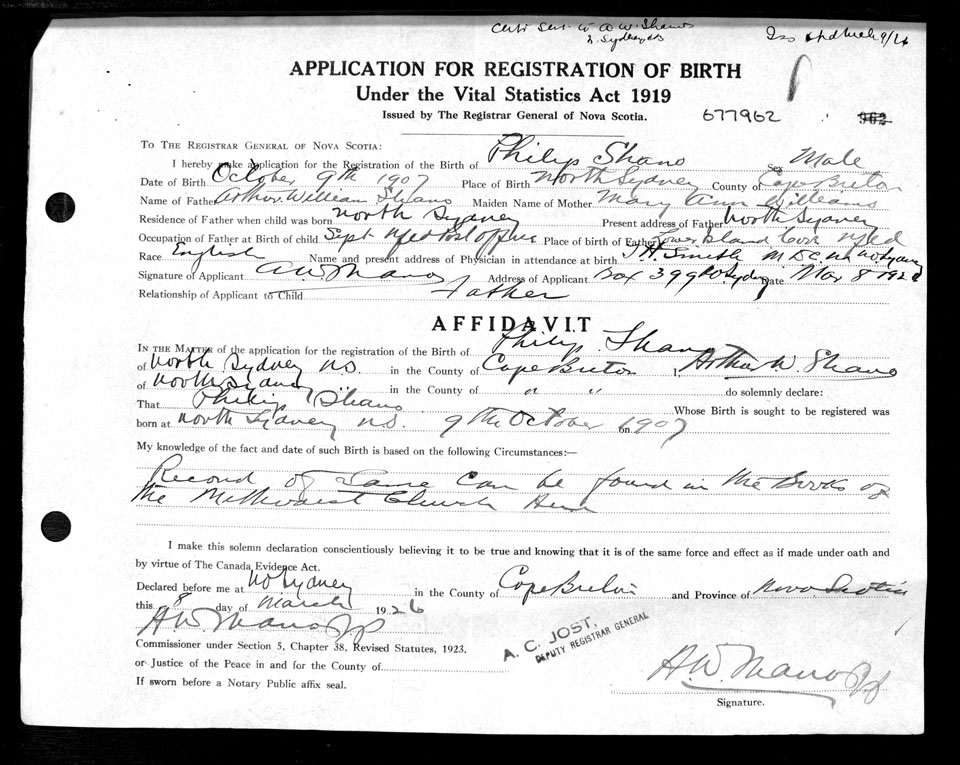 Certi Sent to A W. Shano
N. Sydney NS
APPLICATION FOR REGISTRATION OF BIRTH
Under the Vital Statistics Act 1919
Issued by The Registrar General of Nova Scotia.
677962
962
TO THE REGISTRAR GENERAL OF NOVA SCOTIA:
I hereby make application for the Registration of the Birth of Philip Shano Sex Male
Date of Birth October 9th 1907 Place of Birth North Sydney County of Cape Breton
Name of Father Arthur William Shano Maiden Name of Mother Mary Ann Williams
Residence of Father when child was born North Sydney Present address of Father North Sydney
Occupation of Father at Birth of child Sept Nfld Post Office Place of birth of Father Lower Island Cove Nfld
Race English Name and present address of Physician in attendance at birth J H Smith No Sydney
Signature of Applicant A W Shano Address of Applicant Box 399 No. Sydney Date Mar 8 192
Relationship of Applicant to Child Father
AFFIDAVIT
IN THE MATTER of the application for the registration of the Birth of Philip Shano
of North Sydney NS. in the County of Cape Breton I, Arthur W. Shano
of North Sydney in the County of " " do solemnly declare:
That Philip Shano Whose Birth is sought to be registered was
born at North Sydney NS. 9th October on 1907
My knowledge of the fact and date of such Birth is based on the following Circumstances:—
Record of Same Can be found in the Books of
the Methodist Church
I make this solemn declaration conscientiously believing it to be true and knowing that it is of the same force and effect as if made under oath and
by virtue of The Canada Evidence Act.
Declared before me at No Sydney in the County of Cape Breton and Province of Nova Scotia
this 8 day of March 1926
A W Shano JP
Commissioner under Section 5, Chapter 38, Revised Statutes, 1923.
or Justice of the Peace in and for the County of
If sworn before a Notary Public affix seal.
A. C. JOST,
DEPUTY REGISTRAR GENERAL
A. W. Shano JP
Signature.